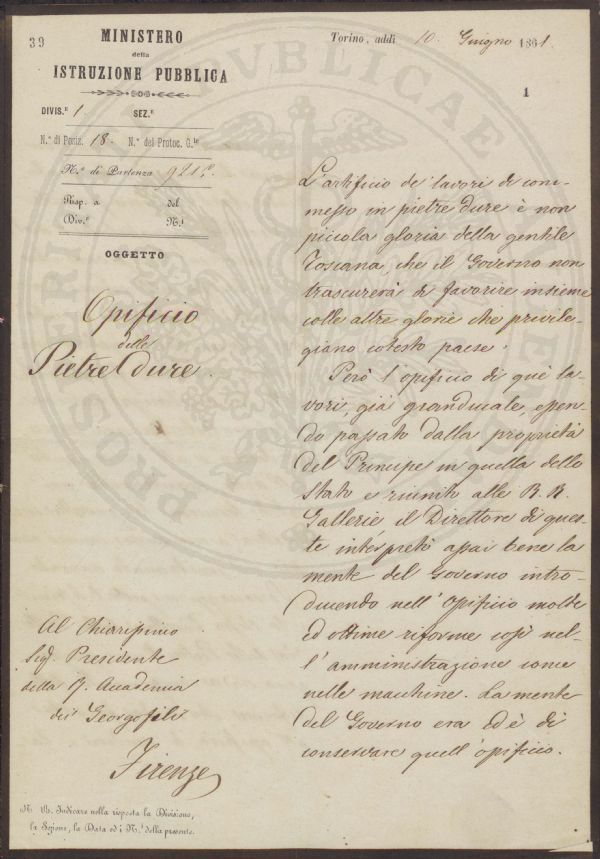 39
MINISTERO
della
ISTRUZIONE PUBBLICA
DIVIS.e 1 SEZ.e
N.o di Posiz. 18. N.o del Protoc. G.le
N.o di Partenza
Risp. a del
Div.e N.o
OGGETTO
Opificio
delle
Pietre dure.
Al Chiarissimo
Sig. Presidente
della R. Accademia
dei Georgofili
Firenze
N. B. Indicare nella risposta la Divisione,
la Sezione, la Data ed i N.i della presente.
Torino, addì 10. Giugno 1861.
1
L'artificio de' lavori di com-
messo in pietre dure è non
piccola gloria della gentile
Toscana, che il Governo non
trascurerà di favorire insieme
colle altre glorie che privile-
giano cotesto paese.
Però l'opificio di que' la-
vori, già granducale, essen-
do passato dalla proprietà
del Principe in quella dello
Stato e riunito alle R. R.
Gallerie il Direttore di ques-
te interpretò assai bene la
mente del Governo intro-
ducendo nell'Opificio molte
ed ottime riforme così nel-
l'amministrazione come
nelle macchine. La mente
del Governo era ed è di
conservare quell'opificio.